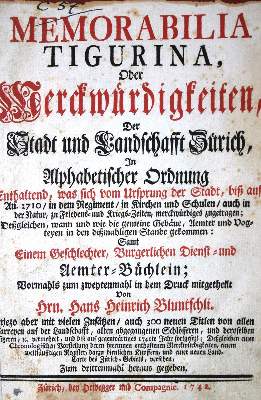 MEMORABILIA
TIGURINA,
Oder
Merckwürdigkeiten,
Der
Stadt und Landschafft Zürich,
In
Alphabetischer Ordnung
Enthaltend, was sich vom Ursprung der Stadt, biß auf
An. 1710/ in dem Regiment/ in Kirchen und Schulen/ auch in
der Natur, zu Friedens- und Kriegs-Zeiten, merckwürdiges zugetragen;
Deßgleichen, wann und wie die gemeine Gebäue, Aemter und Vog-
teyen in den dißmahligen Stande gekommen:
Samt
Einem Geschlechter, Burgerlichen Dienst- und
Aemter-Büchlein;
Vormahls zum zweytenmahl in dem Druck mitgetheilt
Von
Hrn. Hans Heinrich Bluntschli.
aber mit vielen Zusätzen/ auch 300 neuen Titlen von allen
auf der Landschafft, alten abgegangenen Schlössern, und derselben
vermehret, und biß auf gegenwärtiges
einem
Zum drittenmahl heraus gegeben.
Zürich, bey Heidegger und Compagnie. 1742.